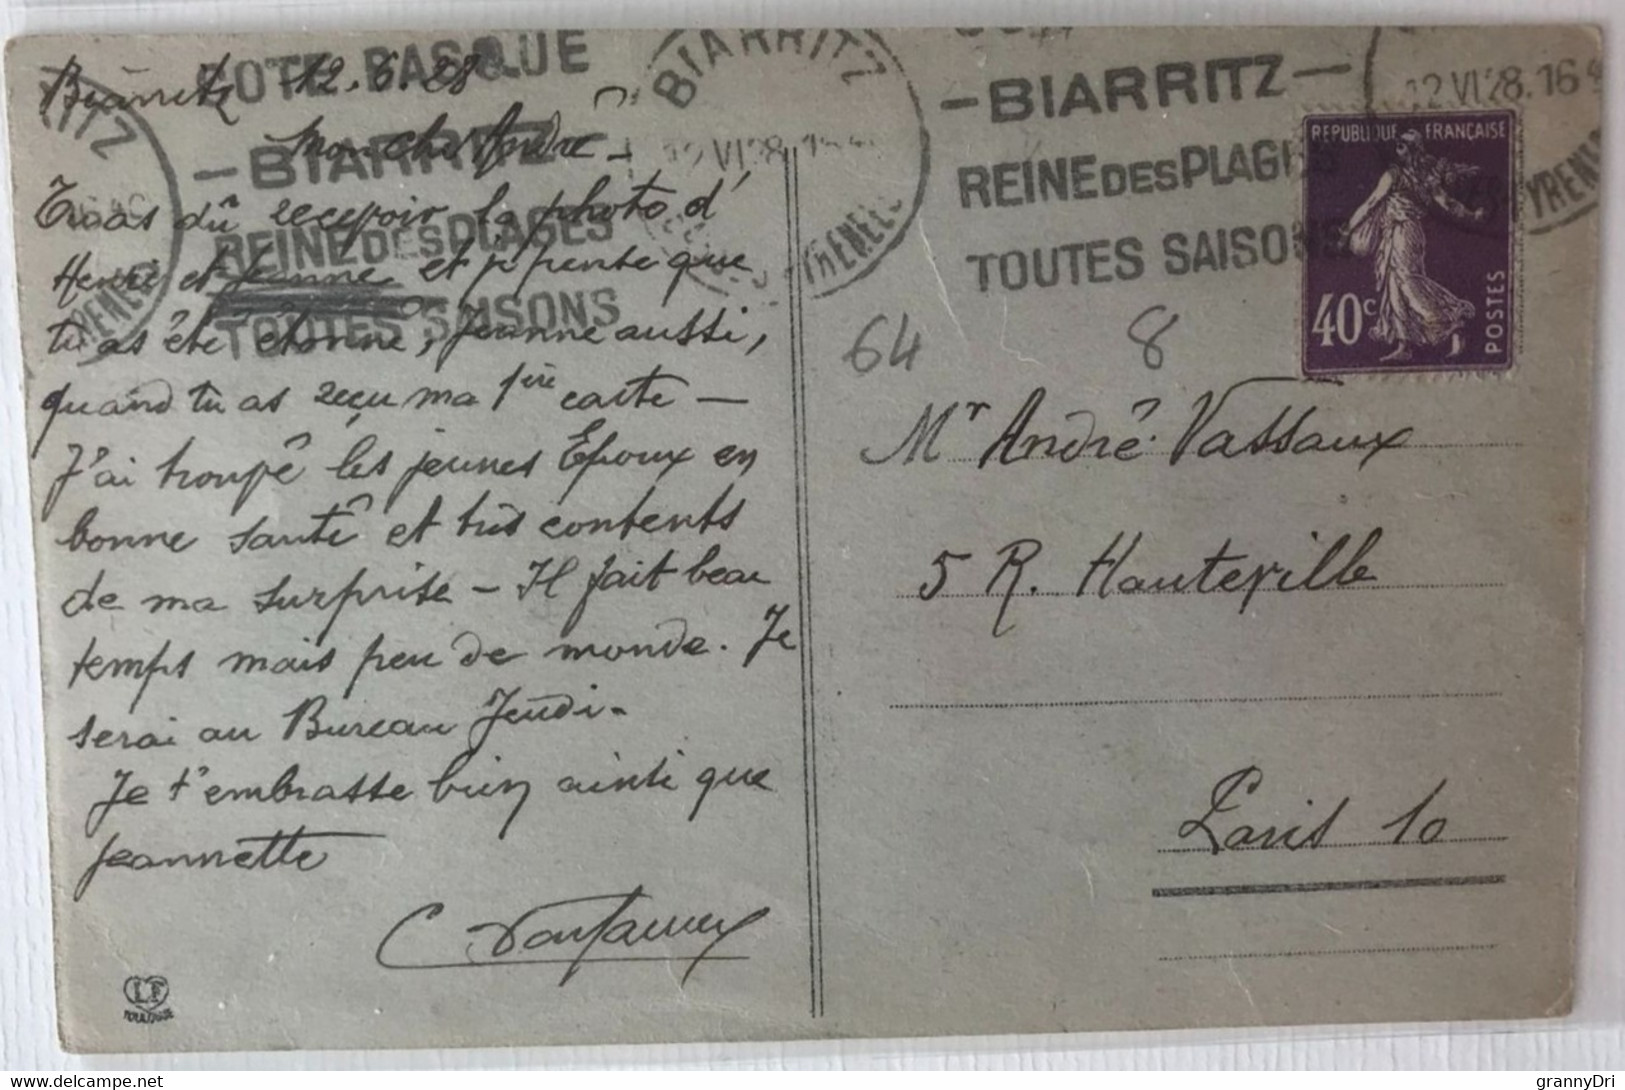 COTE BASQUE
— BIARRITZ —
REINE DES PLAGES
TOUTES SAISONS
BIARRITZ
— BIARRITZ —
REINE DES PLAGES
TOUTES SAISONS
12 VI 28. 16
Biarritz 12.6.28
Mon cher André —
Tu as dû recevoir la photo d'
Henri et Jeanne et je pense que
tu as été étonné, Jeanne aussi,
quand tu as reçu ma 1ère carte —
J'ai trouvé les jeunes Epoux en
bonne santé et très contents
de ma surprise — Il fait beau
temps mais peu de monde. Je
serai au Bureau Jeudi.
Je t'embrasse bien ainsi que
Jeannette
C
LF
TOULOUSE
REPUBLIQUE FRANÇAISE
40c
POSTES
64
8
Mr André Vassaux
5 R. Hauteville
Paris 10
grannyDri